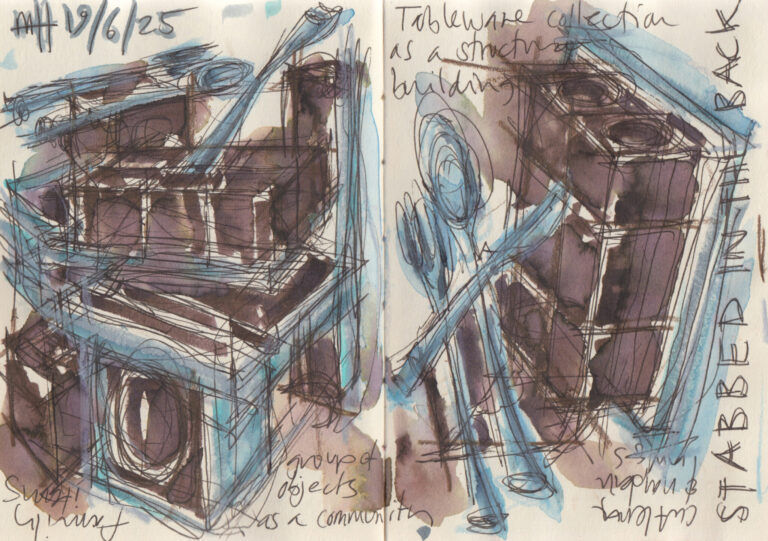 MH 19/6/25
Tableware collection
as a structure
building
STABBED IN THE BACK
group of
objects
as a community
Family
items
cutlery